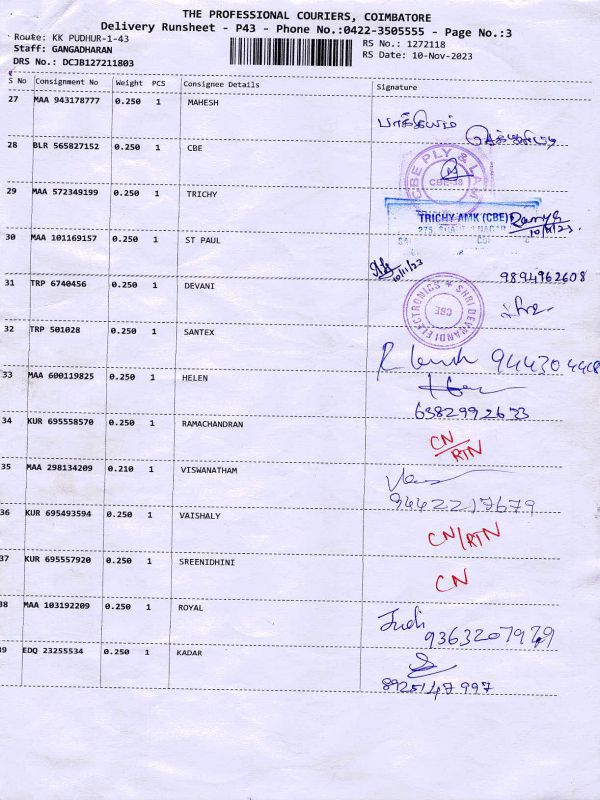 THE PROFESSIONAL COURIERS, COIMBATORE
Delivery Runsheet - P43 - Phone No.:0422-3505555 - Page No.:3
Route: KK PUDHUR-1-43
RS No.: 1272118
Staff: GANGADHARAN
RS Date: 10-Nov-2023
DRS No.: DCJB127211803
S No Consignment No Weight PCS Consignee Details Signature
27 MAA 943178777 0.250 1 MAHESH
பாக்கியம்
28 BLR 565827152 0.250 1 CBE
CBE PLY & LAM
CBE-38
29 MAA 572349199 0.250 1 TRICHY
TRICHY AMK (CBE)
275,
30 MAA 101169157 0.250 1 ST PAUL
10/11/23
9894962608
31 TRP 6740456 0.250 1 DEVANI
SHRI DEVNANDI ELECTRONICS
CBE
32 TRP 501028 0.250 1 SANTEX
33 MAA 600119825 0.250 1 HELEN
6382992633
34 KUR 695558570 0.250 1 RAMACHANDRAN
CN/RTN
35 MAA 298134209 0.210 1 VISWANATHAM
9442217679
36 KUR 695493594 0.250 1 VAISHALY
CN/RTN
37 KUR 695557920 0.250 1 SREENIDHINI
CN
38 MAA 103192209 0.250 1 ROYAL
Judi
39 EDQ 23255534 0.250 1 KADAR
8925147997